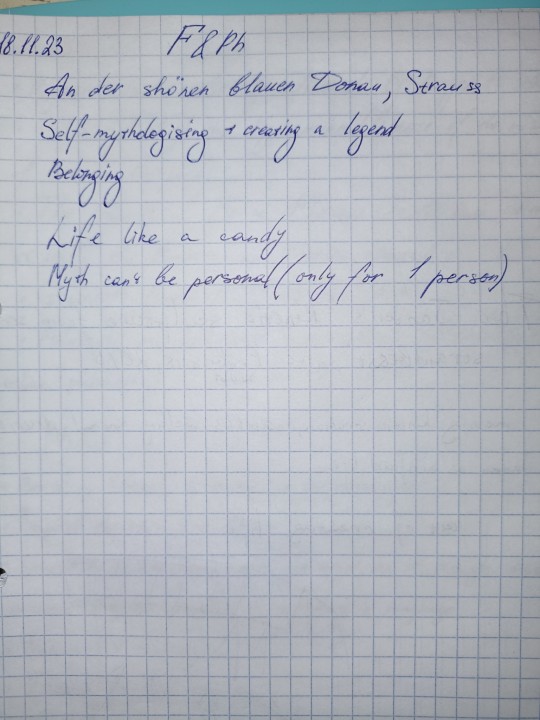 18.11.23
F & Ph
An der shönen blauen Donau, Strauss
Self-mythologising + creating a legend
Belonging
Life like a candy
Myth can't be personal (only for 1 person)